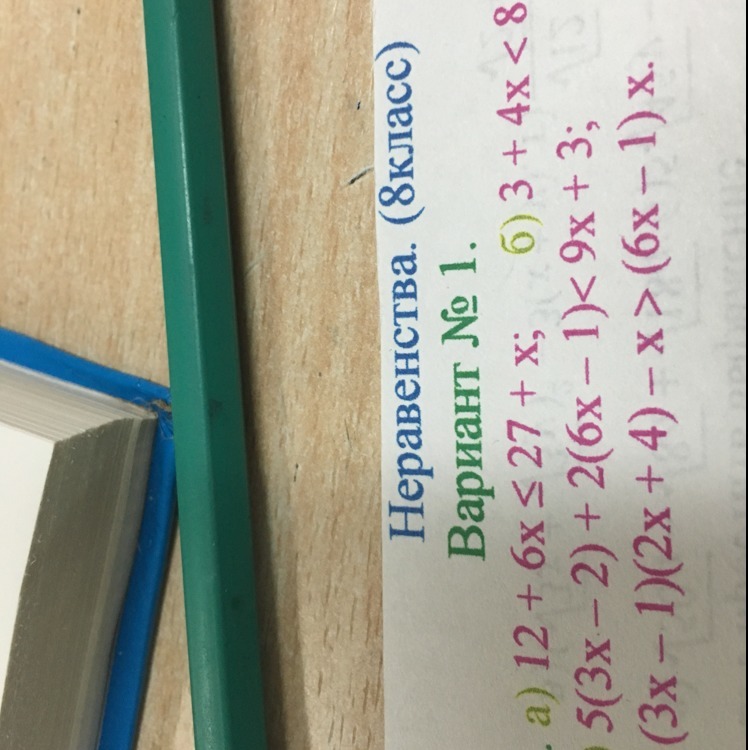 Неравенства. (8класс)
Вариант № 1.
а) 12 + 6x ≤ 27 + x; б) 3 + 4x < 8
5(3x – 2) + 2(6x – 1)< 9x + 3;
(3x – 1)(2x + 4) – x > (6x – 1) x.